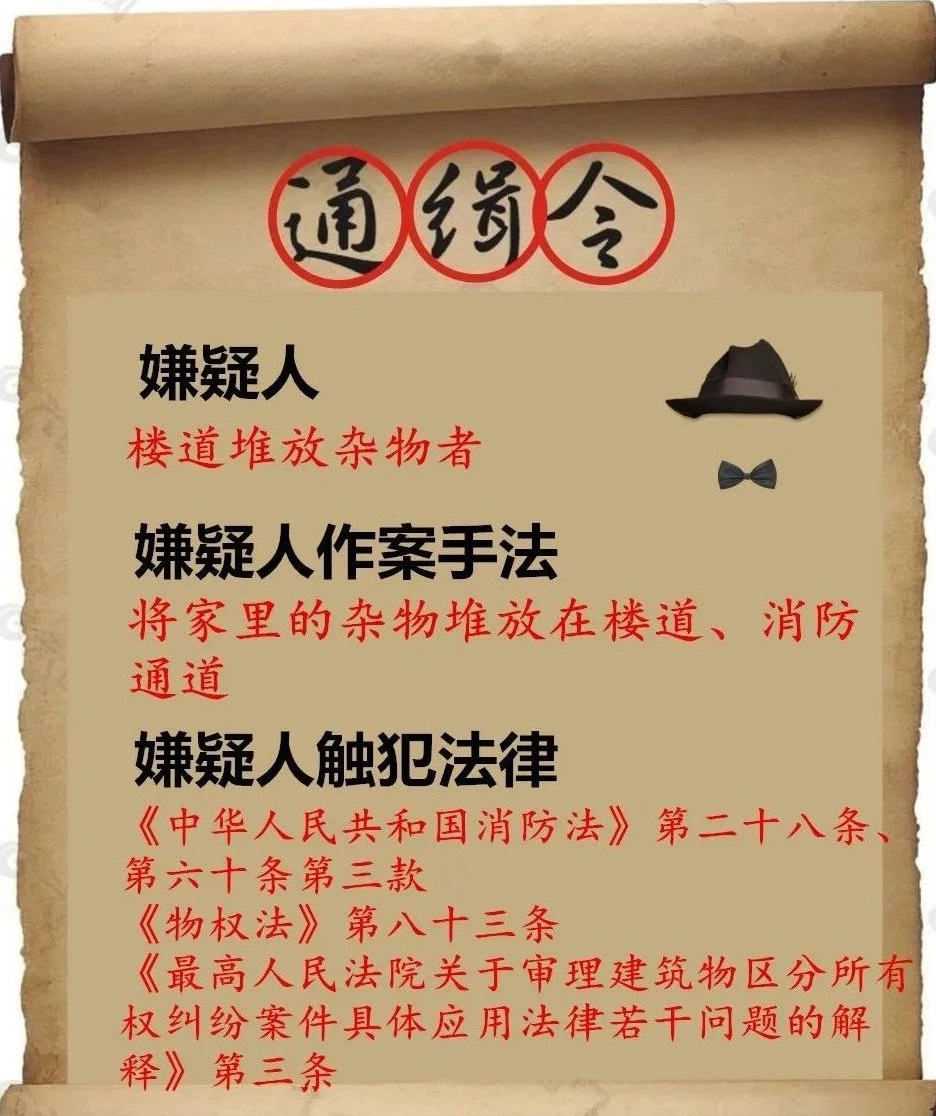 通缉令
嫌疑人
楼道堆放杂物者
嫌疑人作案手法
将家里的杂物堆放在楼道、消防
通道
嫌疑人触犯法律
《中华人民共和国消防法》第二十八条、
第六十条第三款
《物权法》第八十三条
《最高人民法院关于审理建筑物区分所有
权纠纷案件具体应用法律若干问题的解
释》第三条